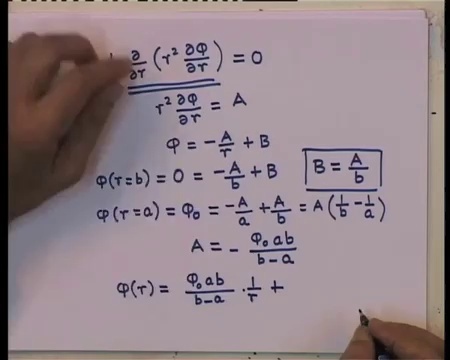 ∂/∂r (r² ∂φ/∂r) = 0
r² ∂φ/∂r = A
φ = -A/r + B
φ(r=b) = 0 = -A/b + B    B = A/b
φ(r=a) = φ₀ = -A/a + A/b = A(1/b - 1/a)
A = - φ₀ab/b-a
φ(r) = φ₀ab/b-a · 1/r +